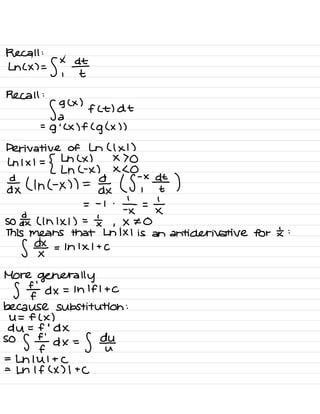 Recall:
Ln(x) = ∫₁ˣ dt/t
Recall:
∫ₐ^g(x) f(t)dt
= g'(x)f(g(x))
Derivative of Ln(|x|)
Ln|x| = { Ln(x) x>0
Ln(-x) , x<0
d/dx (ln(-x)) = d/dx (∫₁^-x dt/t)
= -1 · 1/-x = 1/x
so d/dx (ln|x|) = 1/x , x ≠ 0
This means that Ln|x| is an antiderivative for 1/x :
∫ dx/x = ln|x|+c
More generally
∫ f'/f dx = ln|f|+c
because substitution:
u = f(x)
du = f'dx
so ∫ f'/f dx = ∫ du/u
= Ln|u|+c
= Ln|f(x)|+c